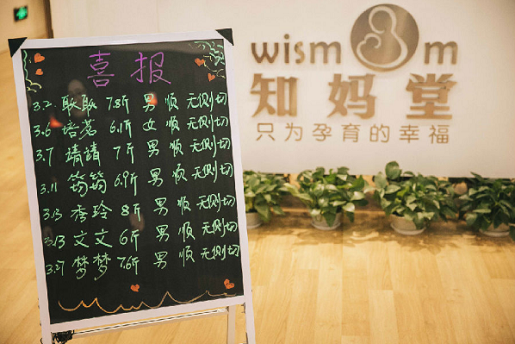 喜报
3.2 耿耿 7.8斤 男 顺 无侧切
3.6 培蕊 6.1斤 女 顺 无侧切
3.7 靖靖 7斤 男 顺 无侧切
3.11 筠筠 6.9斤 男 顺 无侧切
3.13 季玲 8斤 男 顺 无侧切
3.13 文文 6斤 男 顺 无侧切
3.27 梦梦 7.6斤 男 顺 无侧切
wism m
知妈堂
只为孕育的幸福